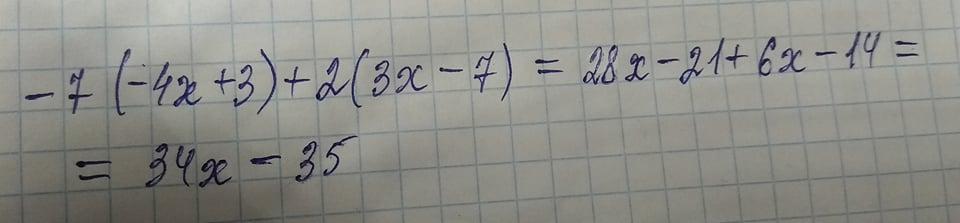 -7(-4x+3)+2(3x-7)=28x-21+6x-14=
=34x-35